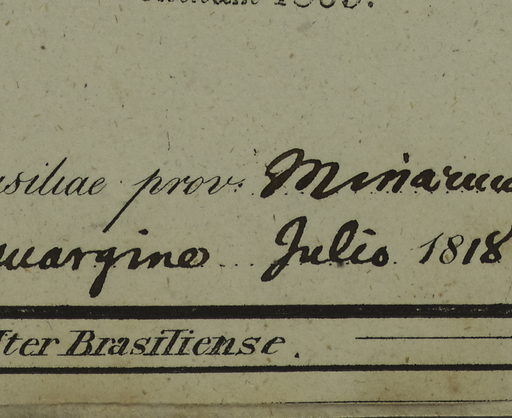 asiliae prov. Minarum
margine Julio 1818
Iter Brasiliense.